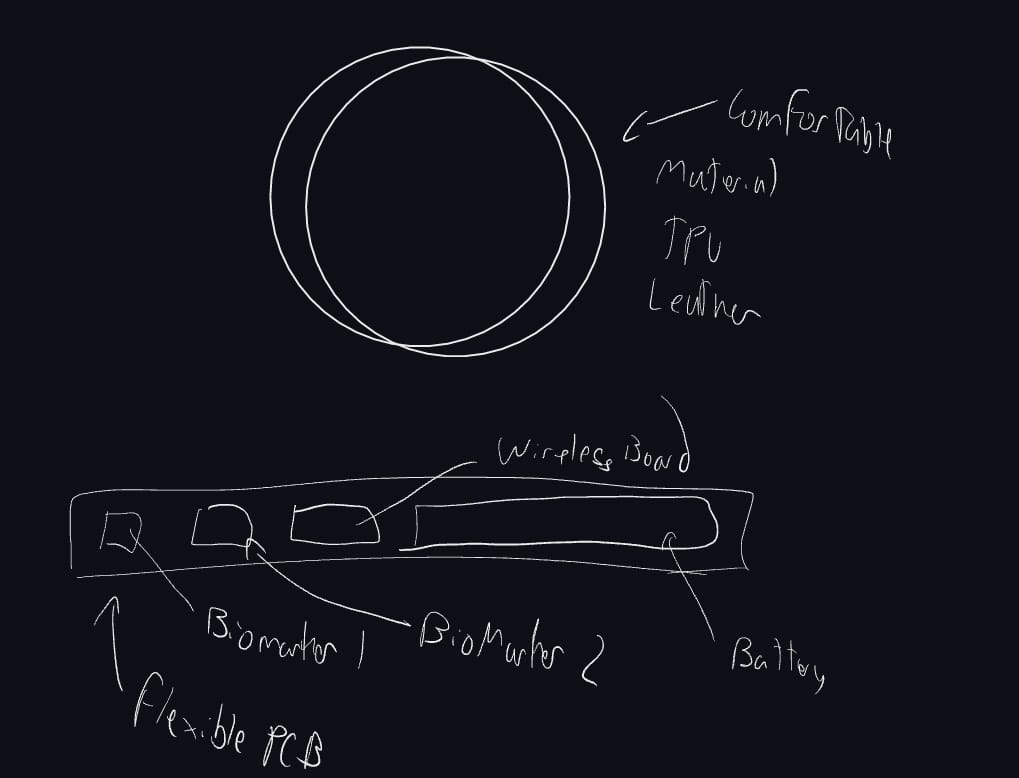 Comfortable
Material
TPU
Leather
Wireless Board
Biomarker 1
BioMarker 2
Battery
Flexible PCB